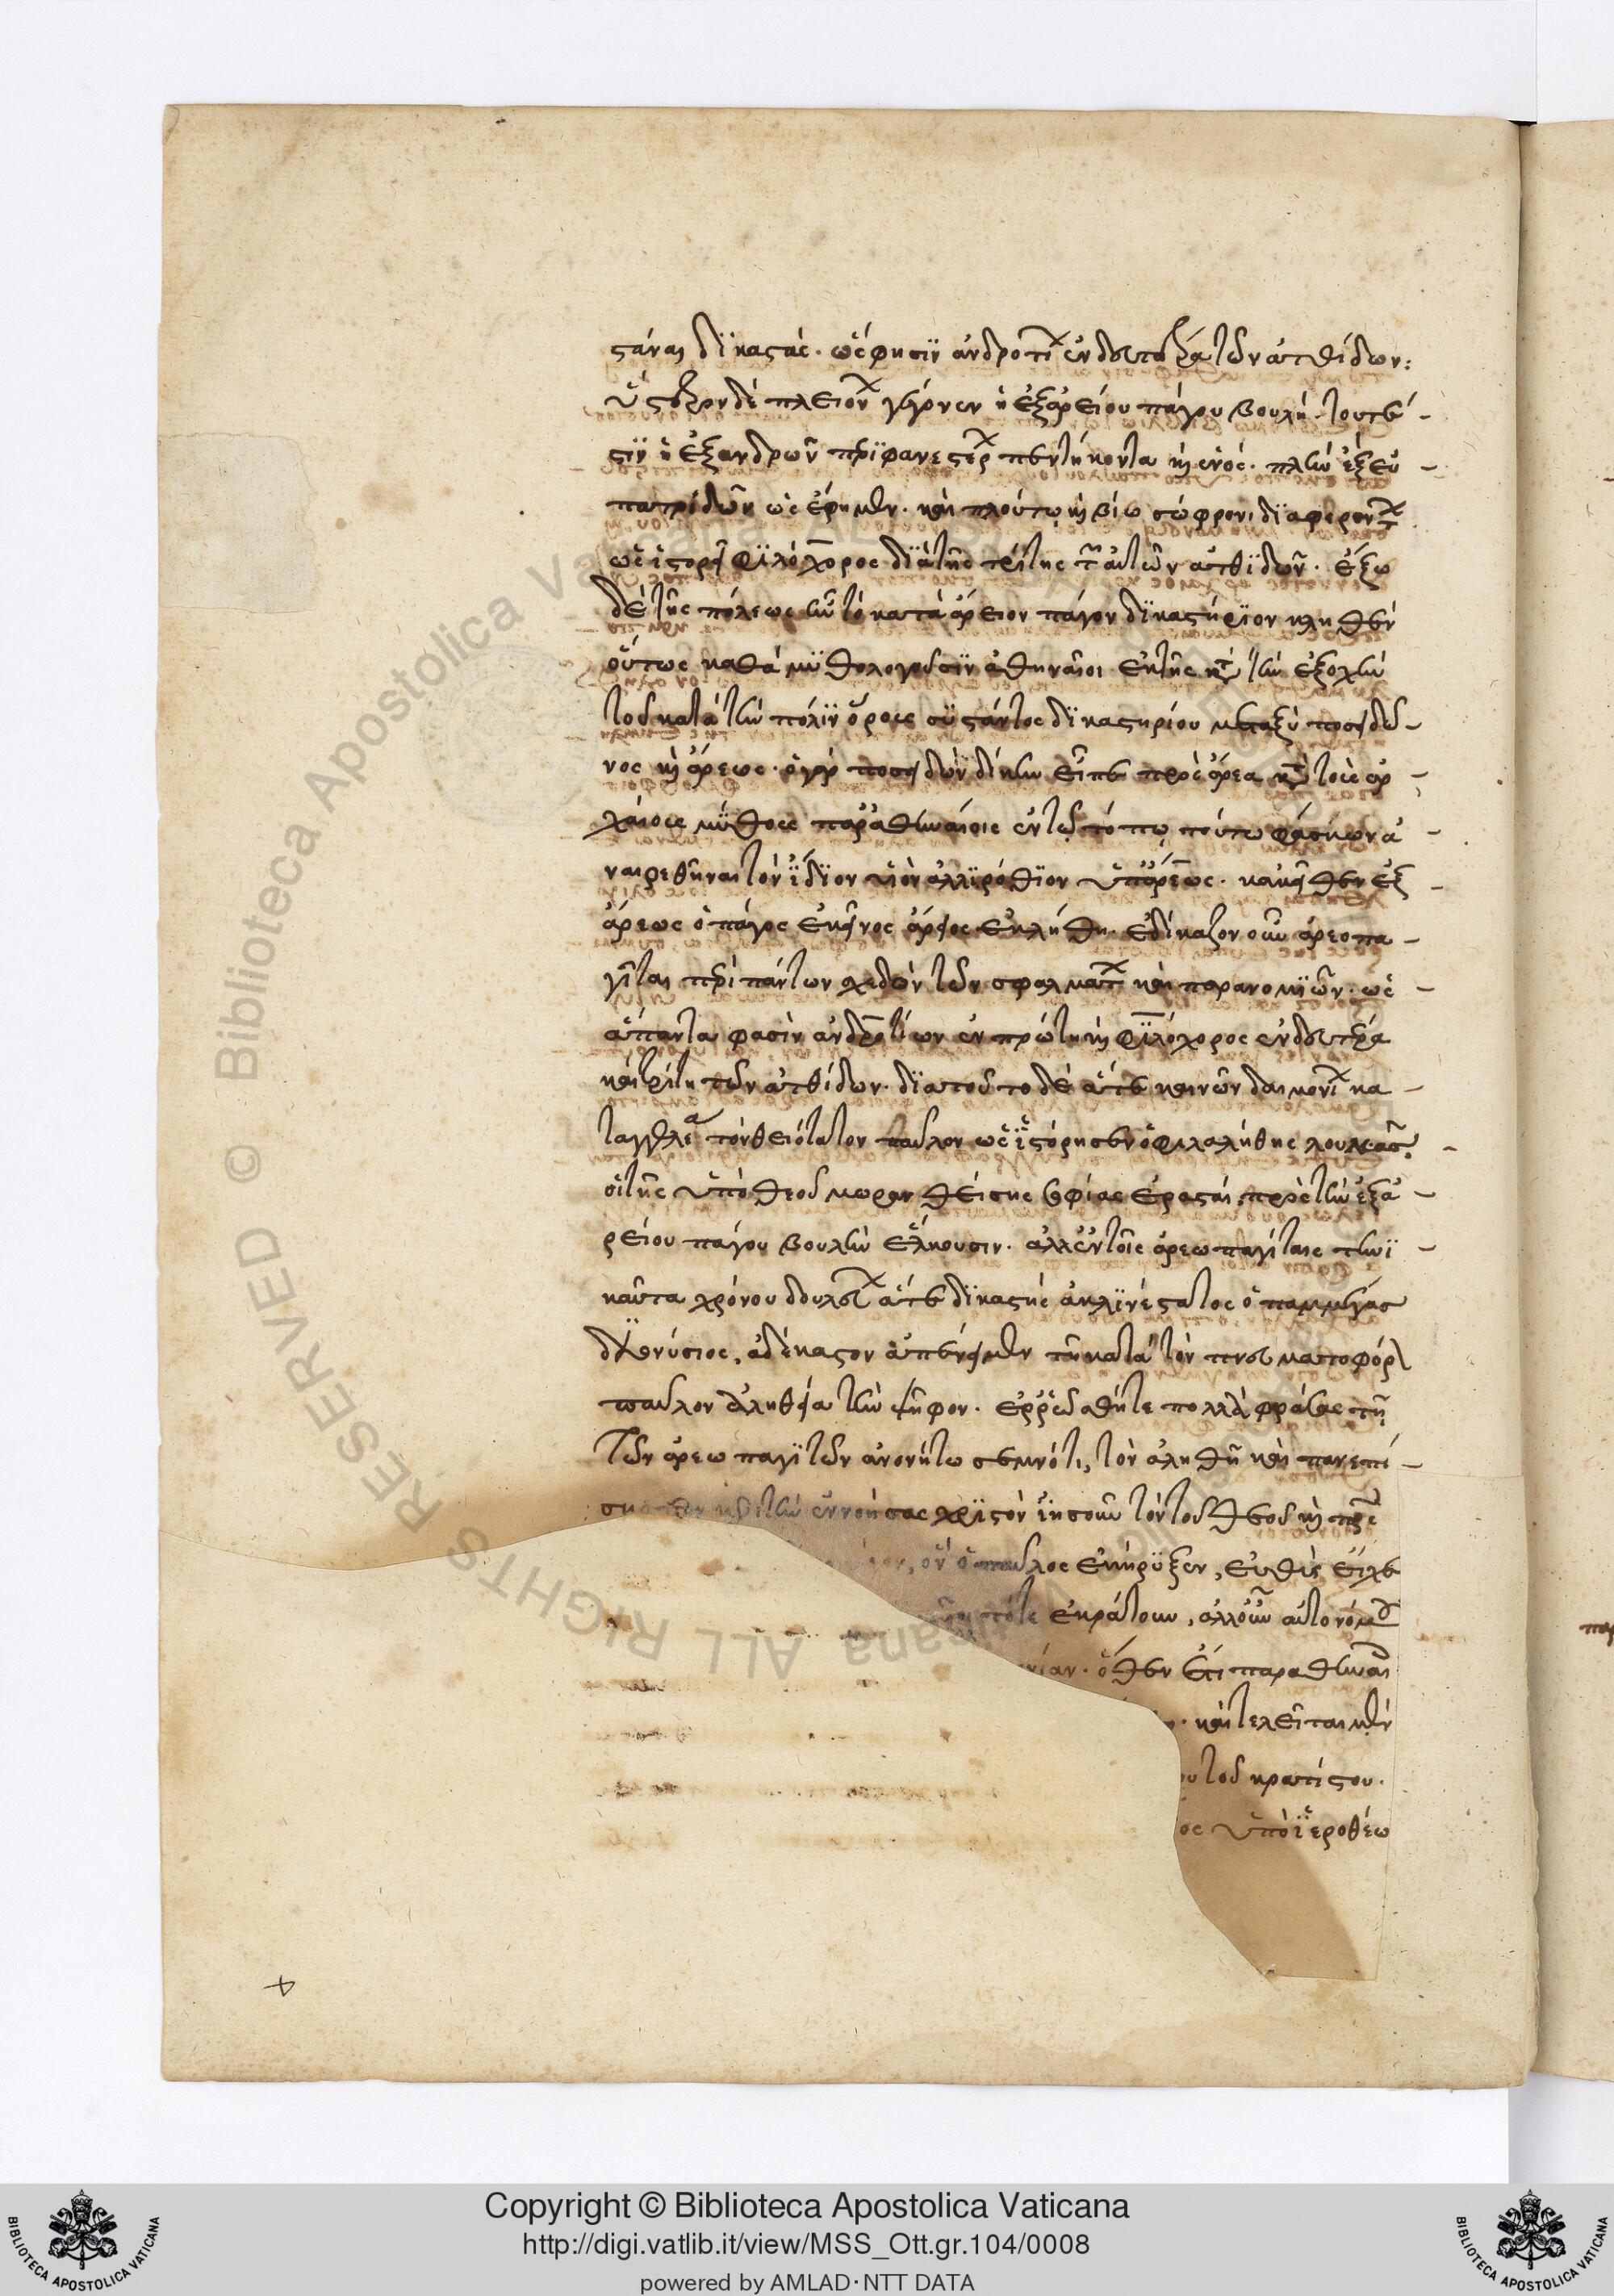 στάναι δικαστάς. ὥς φησιν ἀνδροτίων ἐν δευτέρᾳ τῶν ἀτθίδων:
ὕστερον δὲ πλειόνων γέγονεν ἡ ἐξ ἀρείου πάγου βουλή. τουτέ-
στιν ἡ ἐξ ἀνδρῶν περιφανεστέρων πεντήκοντα καὶ ἑνός. πλὴν ἐξ εὐ-
πατριδῶν ὡς ἔφημεν. καὶ πλούτῳ καὶ βίῳ σώφρονι διαφερόντων
ὡς ἱστορεῖ φιλόχορος διὰ τῆς τρίτης τῶν αὐτῶν ἀτθίδων. ἔξω
δὲ τῆς πόλεως ἦν τὸ κατὰ ἄρειον πάγον δικαστήριον κληθὲν
οὕτως καθὰ μυθολογοῦσιν ἀθηναῖοι ἐκ τῆς κατὰ τὴν ἐξοχὴν
τοῦ κατὰ τὴν πόλιν ὄρους συστάντος δικαστηρίου μεταξὺ ποσειδῶ-
νος καὶ ἄρεως. ὁ γὰρ ποσειδῶν δίκην εἶπε πρὸς ἄρεα κατὰ τοὺς ἀρ-
χαίους μύθους παρ' ἀθηναίοις ἐν τῷ τόπῳ τούτῳ φάσκων ἀ-
ναιρεθῆναι τὸν ἴδιον υἱὸν ἀλλιρόθιον ὑπ' ἄρεως. κακεῖθεν ἐξ
ἄρεως ὁ πάγος ἐκεῖνος ἄρειος ἐκλήθη. ἐδίκαζον οὖν ἀρεοπα-
γῖται περὶ πάντων σχεδὸν τῶν σφαλμάτων καὶ παρανομιῶν. ὡς
ἅπαντα φασὶν ἀνδροτίων ἐν πρώτῃ καὶ φιλόχορος ἐν δευτέρᾳ
καὶ τρίτῃ τῶν ἀτθίδων. διὰ τοῦτο δὲ ἅτε καινῶν δαιμονίων κα-
ταγγελέα τὸν θειότατον παῦλον ὡς ἱστόρησεν ὁ φιλαλήθης λουκᾶς.
οἱ τῆς ὑπὸ θεοῦ μωρανθείσης σοφίας ἐρασταί, πρὸς τὴν ἐξ ἀ-
ρείου πάγου βουλὴν ἕλκουσιν. ἀλλ' ἐν τοῖς ἀρεωπαγίταις τηνι-
καῦτα χρόνου δουλεύων ἅτε δικαστὴς ἀκλινέστατος ὁ παμμέγας
διονύσιος, ἀδέκαστον ἀπένειμεν τῇ κατὰ τὸν πνευματοφόρον
παῦλον ἀληθείᾳ τὴν ψῆφον. ἐρρῶσθαί τε πολλὰ φράσας τῇ
τῶν ἀρεωπαγιτῶν ἀνονήτῳ σεμνότητι, τὸν ἀληθῆ καὶ πανεπί-
σκοπον κριτὴν ἐννοήσας χριστὸν ἰησοῦν τὸν τοῦ θεοῦ καὶ πατρὸς
ὃν ὁ παῦλος ἐκήρυξεν, εὐθὺς εἵλετο
τότε ἐκράτουν, ἀλλ' οὖν αὐτονόμους
ὅθεν ἔτι παρ' ἀθηναίοις
καὶ τελεῖται μὲν
τοῦ κρατίστου.
ὑπὸ ἱεροθέῳ
Copyright © Biblioteca Apostolica Vaticana
http://digi.vatlib.it/view/MSS_Ott.gr.104/0008
powered by AMLAD · NTT DATA
BIBLIOTECA APOSTOLICA VATICANA
BIBLIOTECA APOSTOLICA VATICANA
© Biblioteca Apostolica Vaticana ALL RIGHTS RESERVED